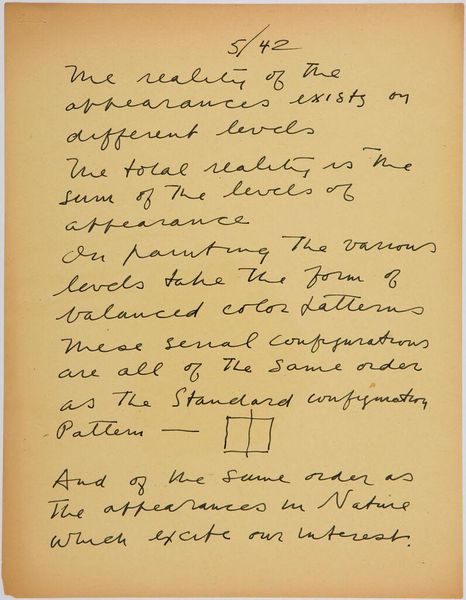 5/42
The reality of the
appearances exists on
different levels
The total reality is the
sum of the levels of
appearance
In painting the various
levels take the form of
balanced color patterns
These serial configurations
are all of the same order
as the Standard configuration
Pattern —
And of the same order as
the appearances in Nature
which excite our interest.